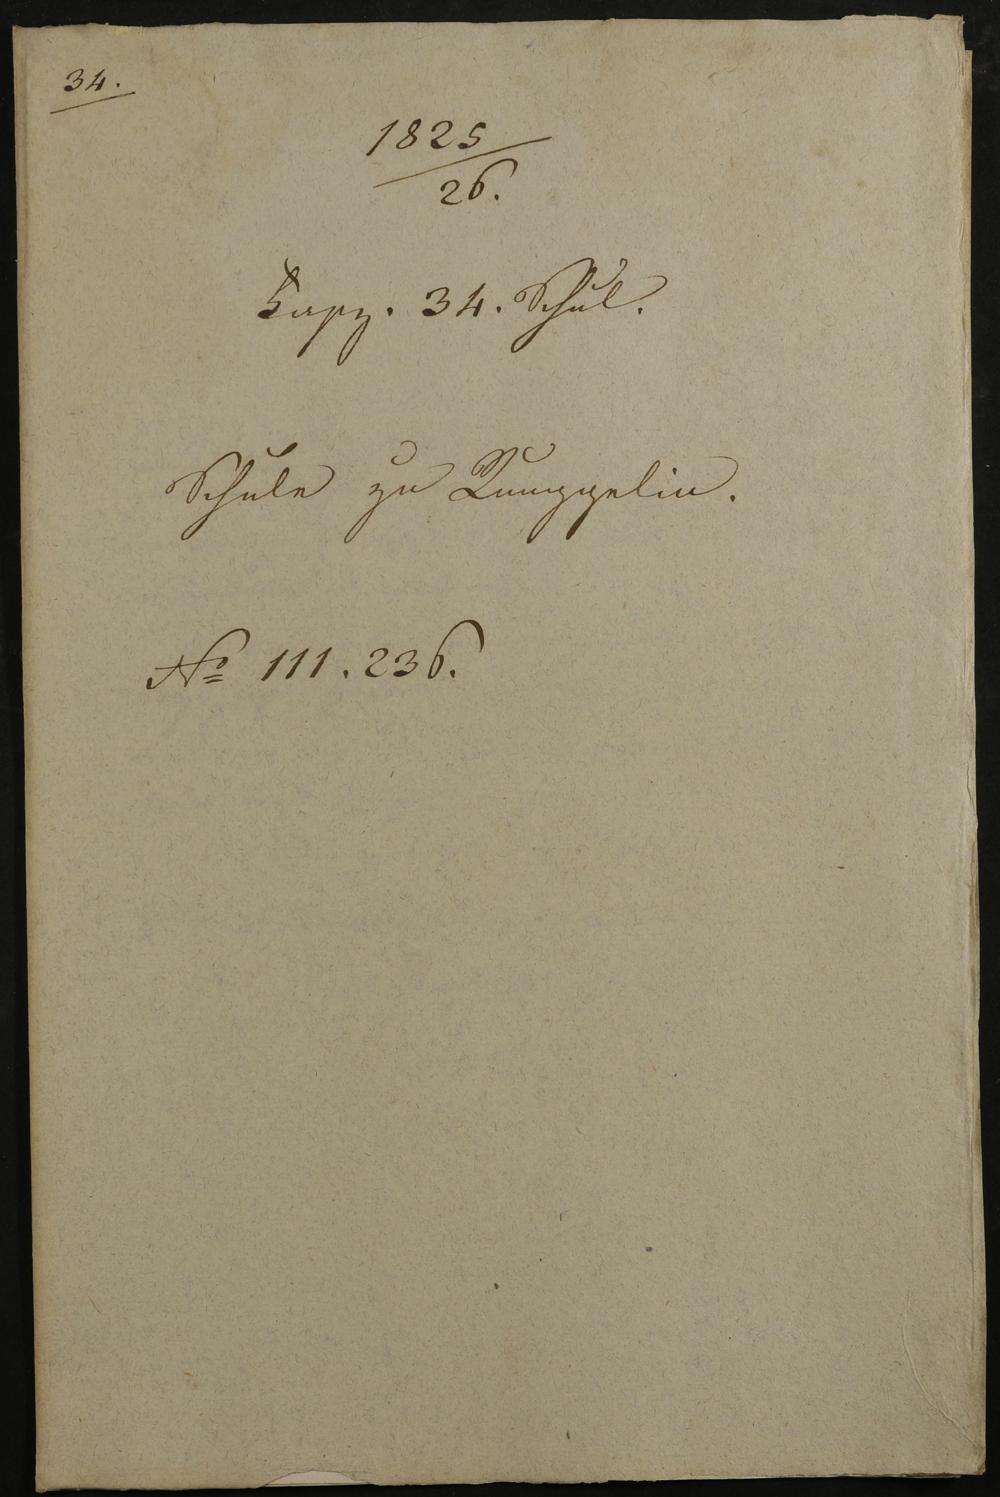 34.
1825
26.
Fasz. 34. Schul.
Schule zu Runggelin.
No 111. 236.